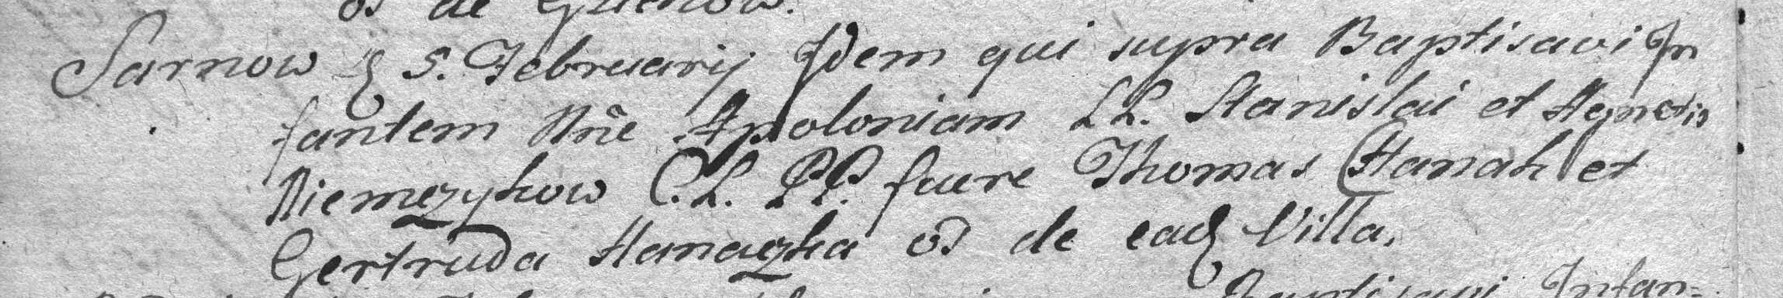 os de
Sarnow d 5. Februarij Idem qui supra Baptisavi In
fantem Nn̄e Apoloniam LL. Stanislai et Agnetis
Niemczykow C.L. PP. fuere Thomas Hanak et
Gertruda Hanaczka os de ead Villa.
Baptisavi Infan=